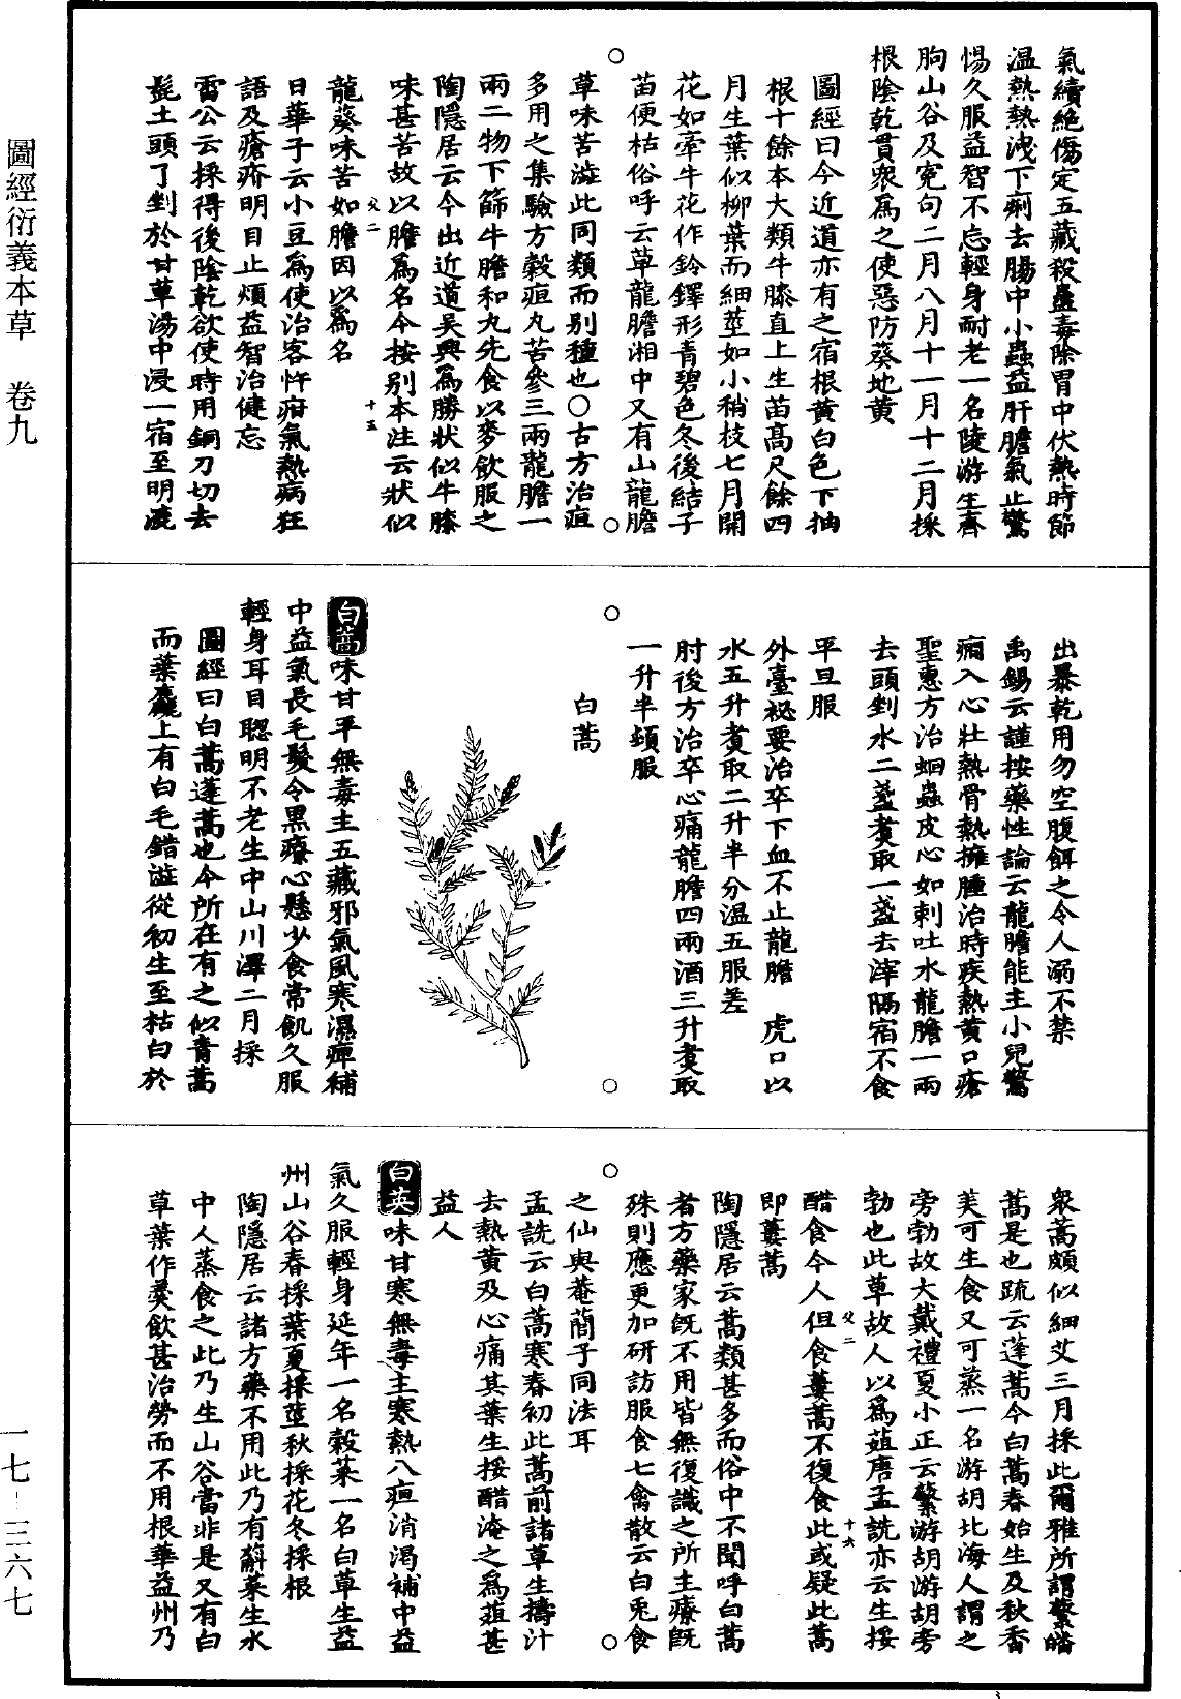 圖經衍義本草　卷九
氣續絕傷定五藏殺蠱毒除胃中伏熱時節
温熱熱洩下痢去腸中小蟲益肝膽氣止驚
惕久服益智不忘輕身耐老一名陵游生齊
朐山谷及宛句二月八月十一月十二月採
根陰乾貫衆爲之使惡防葵地黄
圖經曰今近道亦有之宿根黄白色下抽
根十餘本大類牛膝直上生苗高尺餘四
月生葉似柳葉而細莖如小稍枝七月開
花如牽牛花作鈴鐸形青碧色冬後結子
苗便枯俗呼云草龍膽湘中又有山龍膽
草味苦澁此同類而别種也○古方治疸
多用之集驗方穀疸丸苦參三兩龍膽一
兩二物下篩牛膽和丸先食以麥飲服之
陶隱居云今出近道吳興爲勝狀似牛膝
味甚苦故以膽爲名今按别本注云狀似
父二　十五
龍葵味苦如膽因以爲名
日華子云小豆爲使治客忤疳氣熱病狂
語及瘡疥明目止煩益智治健忘
雷公云採得後陰乾欲使時用銅刀切去
髭土頭了剉於甘草湯中浸一宿至明漉
出暴乾用勿空腹餌之令人溺不禁
禹錫云謹按藥性論云龍膽能主小兒驚
癇入心壯熱骨熱擁腫治時疾熱黄口瘡
聖惠方治蛔蟲皮心如刺吐水龍膽一兩
去頭剉水二盞煑取一盞去滓隔宿不食
平旦服
外臺祕要治卒下血不止龍膽　虎口以
水五升煑取二升半分温五服差
肘後方治卒心痛龍膽四兩酒三升煑取
一升半頓服
白蒿
白蒿味甘平無毒主五藏邪氣風寒濕痺補
中益氣長毛髮令黑療心懸少食常飢久服
輕身耳目聰明不老生中山川澤二月採
圖經曰白蒿蓬蒿也今所在有之似青蒿
而葉麄上有白毛錯澁從初生至枯白於
衆蒿頗似細艾三月採此爾雅所謂蘩皤
蒿是也疏云蓬蒿今白蒿春始生及秋香
美可生食又可蒸一名游胡北海人謂之
旁勃故大戴禮夏小正云蘩游胡游胡旁
勃也此草故人以爲葅唐孟詵亦云生挼
父二　十六
醋食今人但食蔞蒿不復食此或疑此蒿
即蔞蒿
陶隱居云蒿類甚多而俗中不聞呼白蒿
者方藥家既不用皆無復識之所主療既
殊則應更加研訪服食七禽散云白兎食
之仙與菴䕡子同法耳
孟詵云白蒿寒春初此蒿前諸草生擣汁
去熱黄及心痛其葉生挼醋淹之爲葅甚
益人
白英味甘寒無毒主寒熱八疸消渴補中益
氣久服輕身延年一名穀菜一名白草生益
州山谷春採葉夏採莖秋採花冬採根
陶隱居云諸方藥不用此乃有蔛菜生水
中人蒸食之此乃生山谷當非是又有白
草葉作羹飲甚治勞而不用根華益州乃
一七－三六七